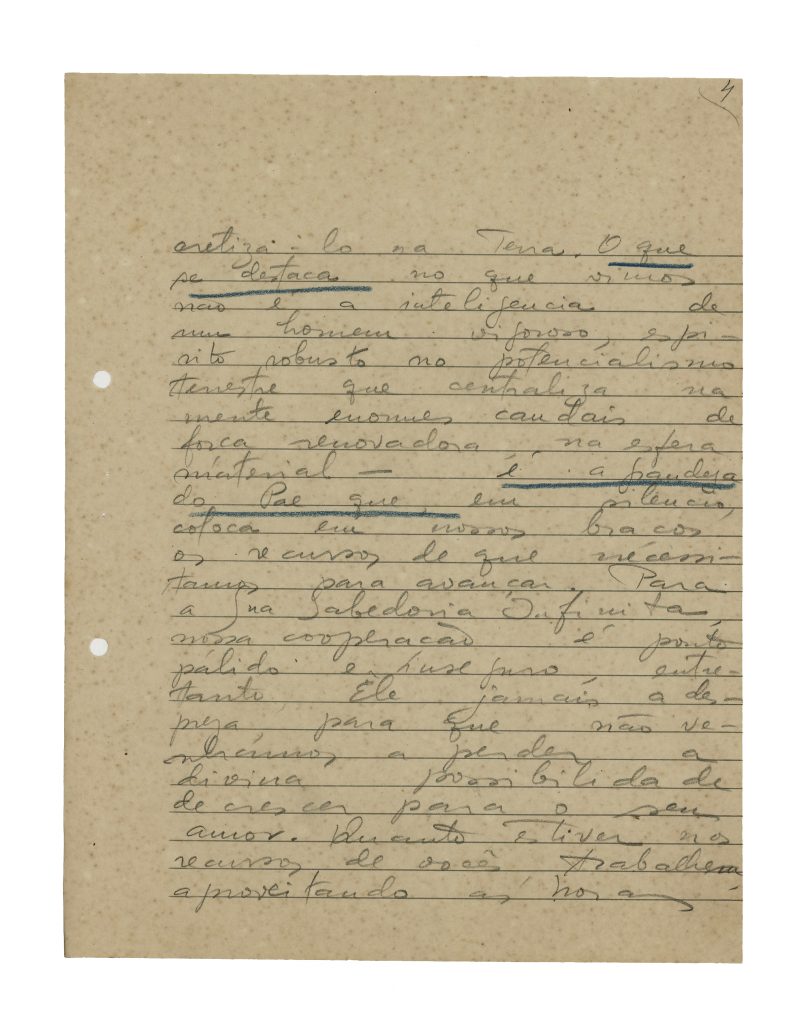 4
cretizá-lo na Terra. O que
se destaca no que vimos
não é a inteligencia de
um homem vigoroso, espi-
rito robusto no potencialismo
terrestre que centraliza na
mente enormes caudais de
força renovadora, na esfera
material — é a grandeza
do Pae que, em silencio,
coloca em nossos braços
os recursos de que necessi-
tamos para avançar. Para
a Sua Sabedoria Infinita,
nossa cooperação é ponto
pálido e inseguro, entre-
tanto, Ele jamais a des-
preza para que não ve-
nhamos a perder a
divina possibilidade
de crescer para o seu
amor. Quanto estiver nos
recursos de vocês trabalhem
aproveitando as horas,